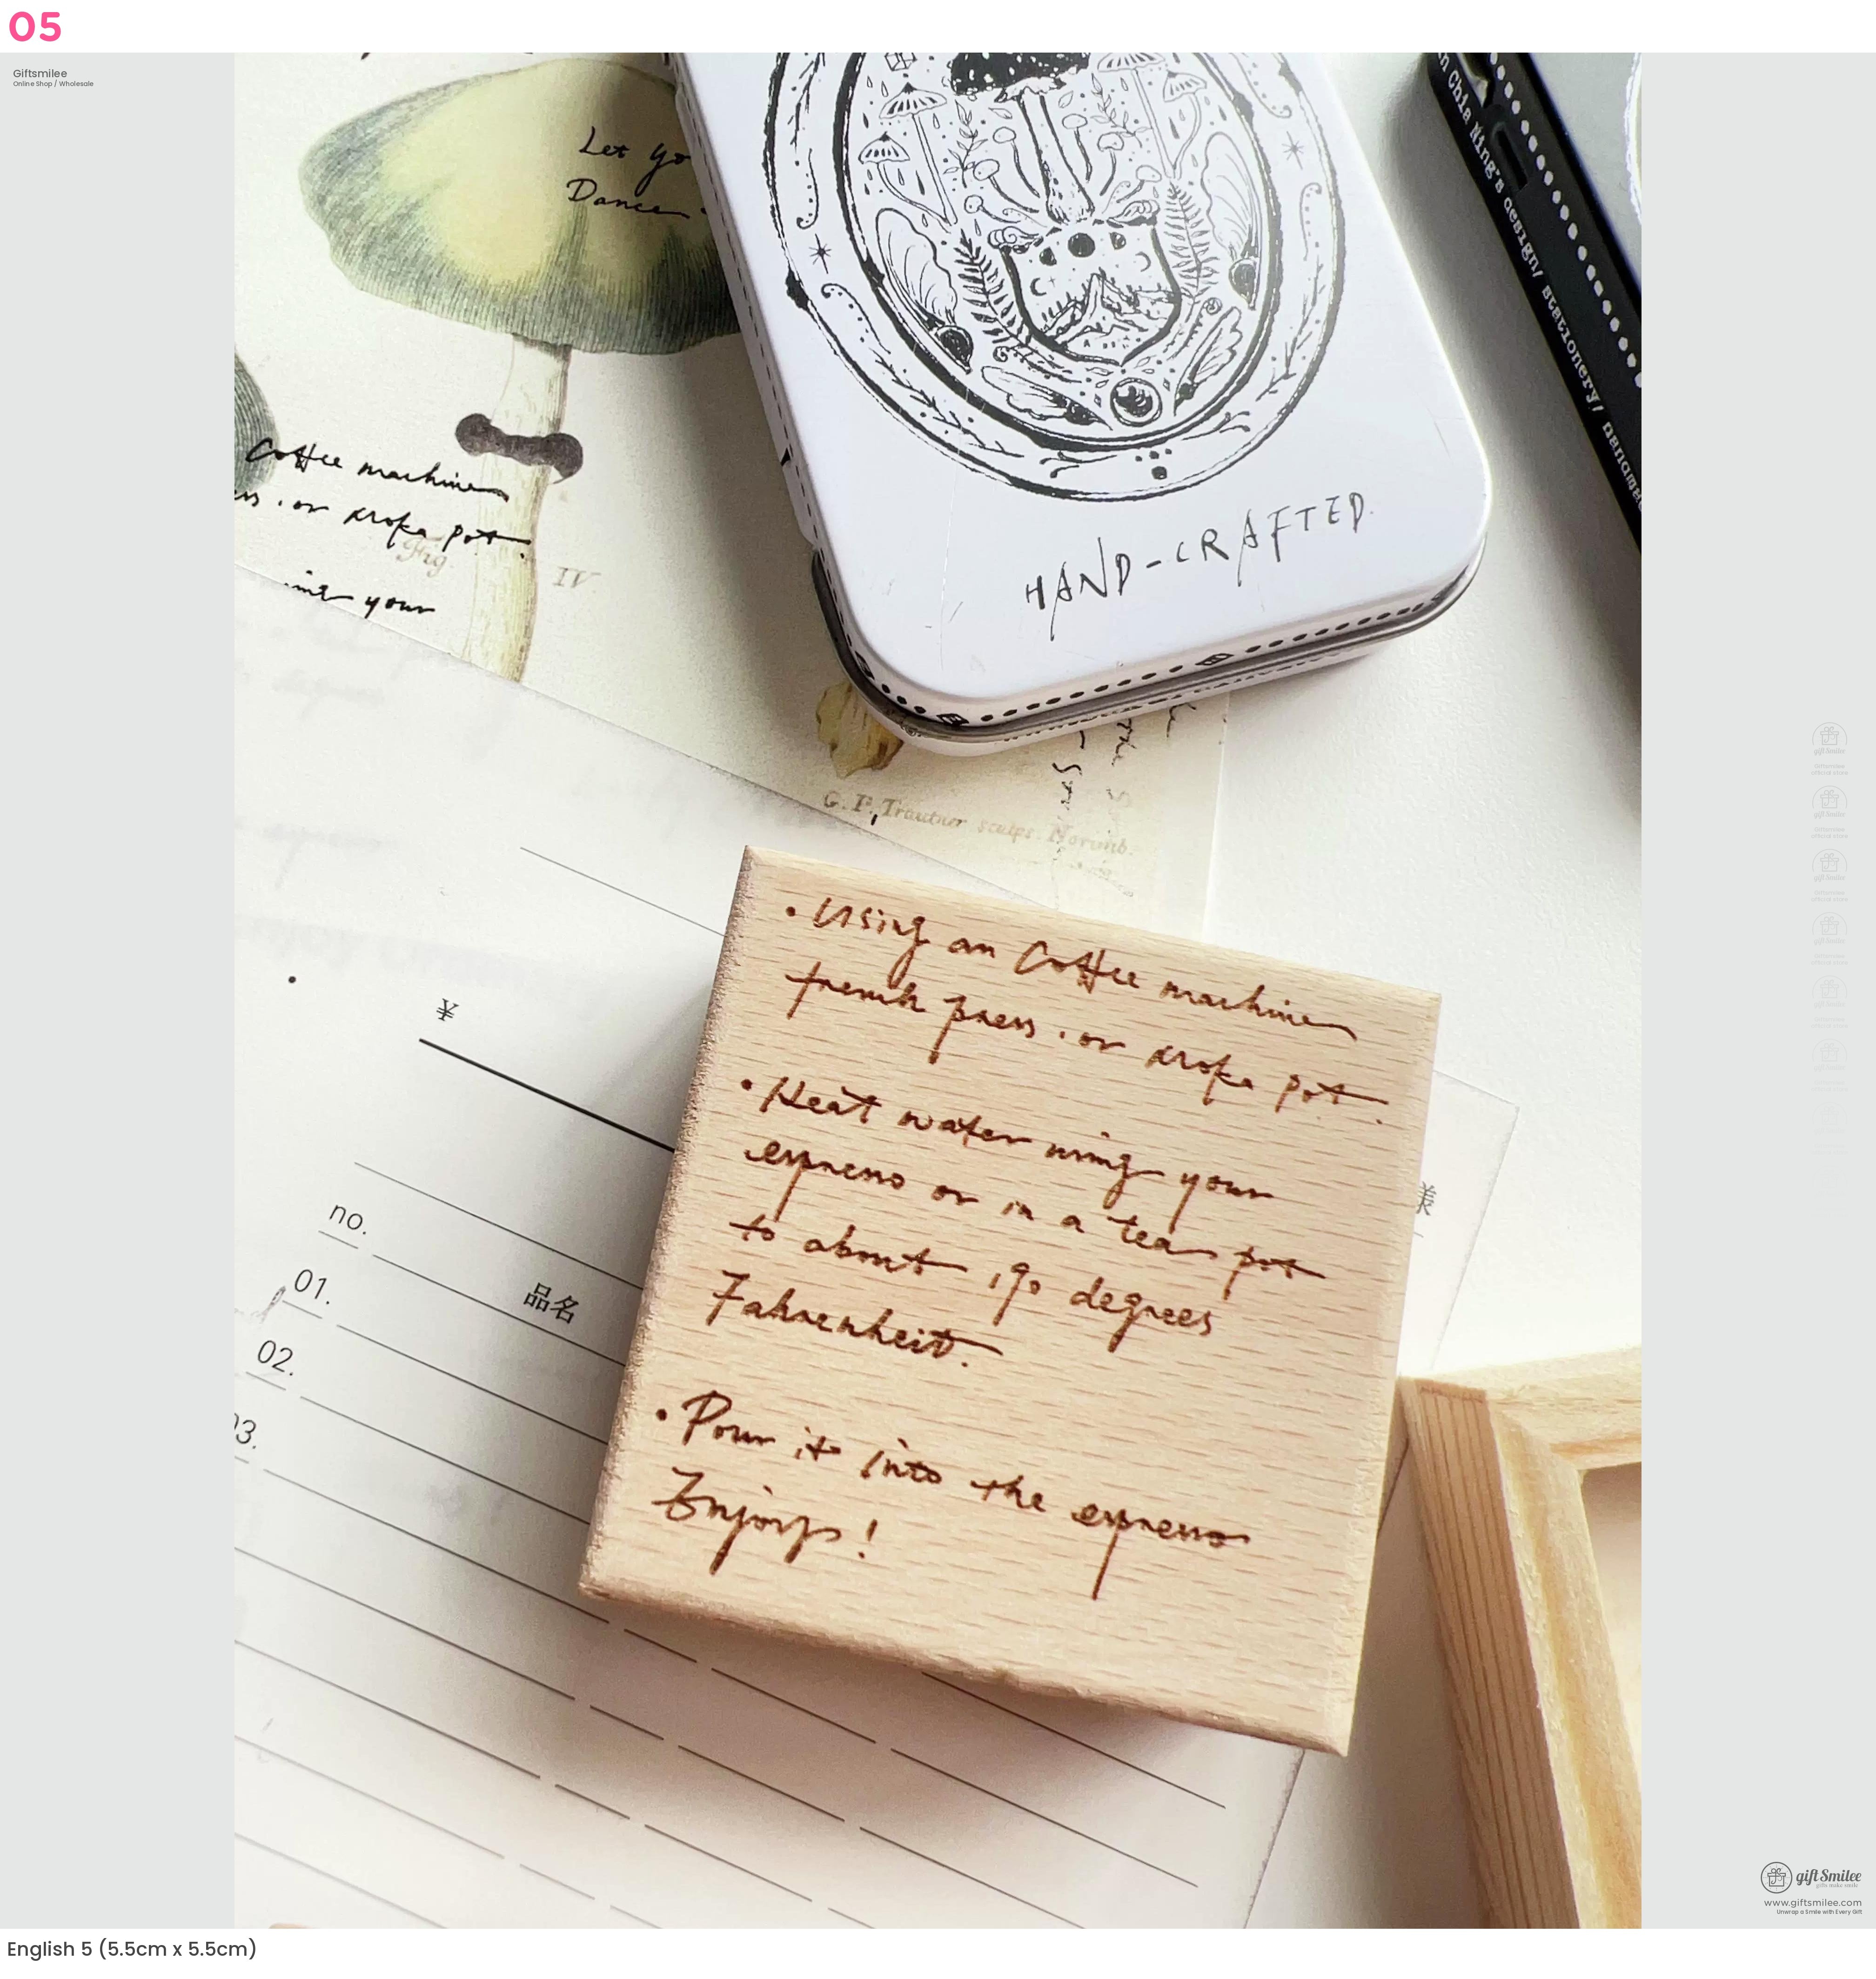 05
Giftsmilee
Online Shop / Wholesale
Let yo
Dance
Coffee machine
ss, or kroka pot.
ing your
Fig. IV
n Chia Ning's design/ stationery/
HAND-CRAFTED.
G. P. Trautner sculps. Norimb.
• Using an Coffee machine
french press, or kroka pot.
• Heat water using your
espresso or in a tea pot
to about 190 degrees
Fahrenheit.
• Pour it into the espresso
Enjoys!
¥
様
no.
品名
01.
02.
03.
gift Smilee
gifts make smile
www.giftsmilee.com
Unwrap a Smile with Every Gift
English 5 (5.5cm x 5.5cm)